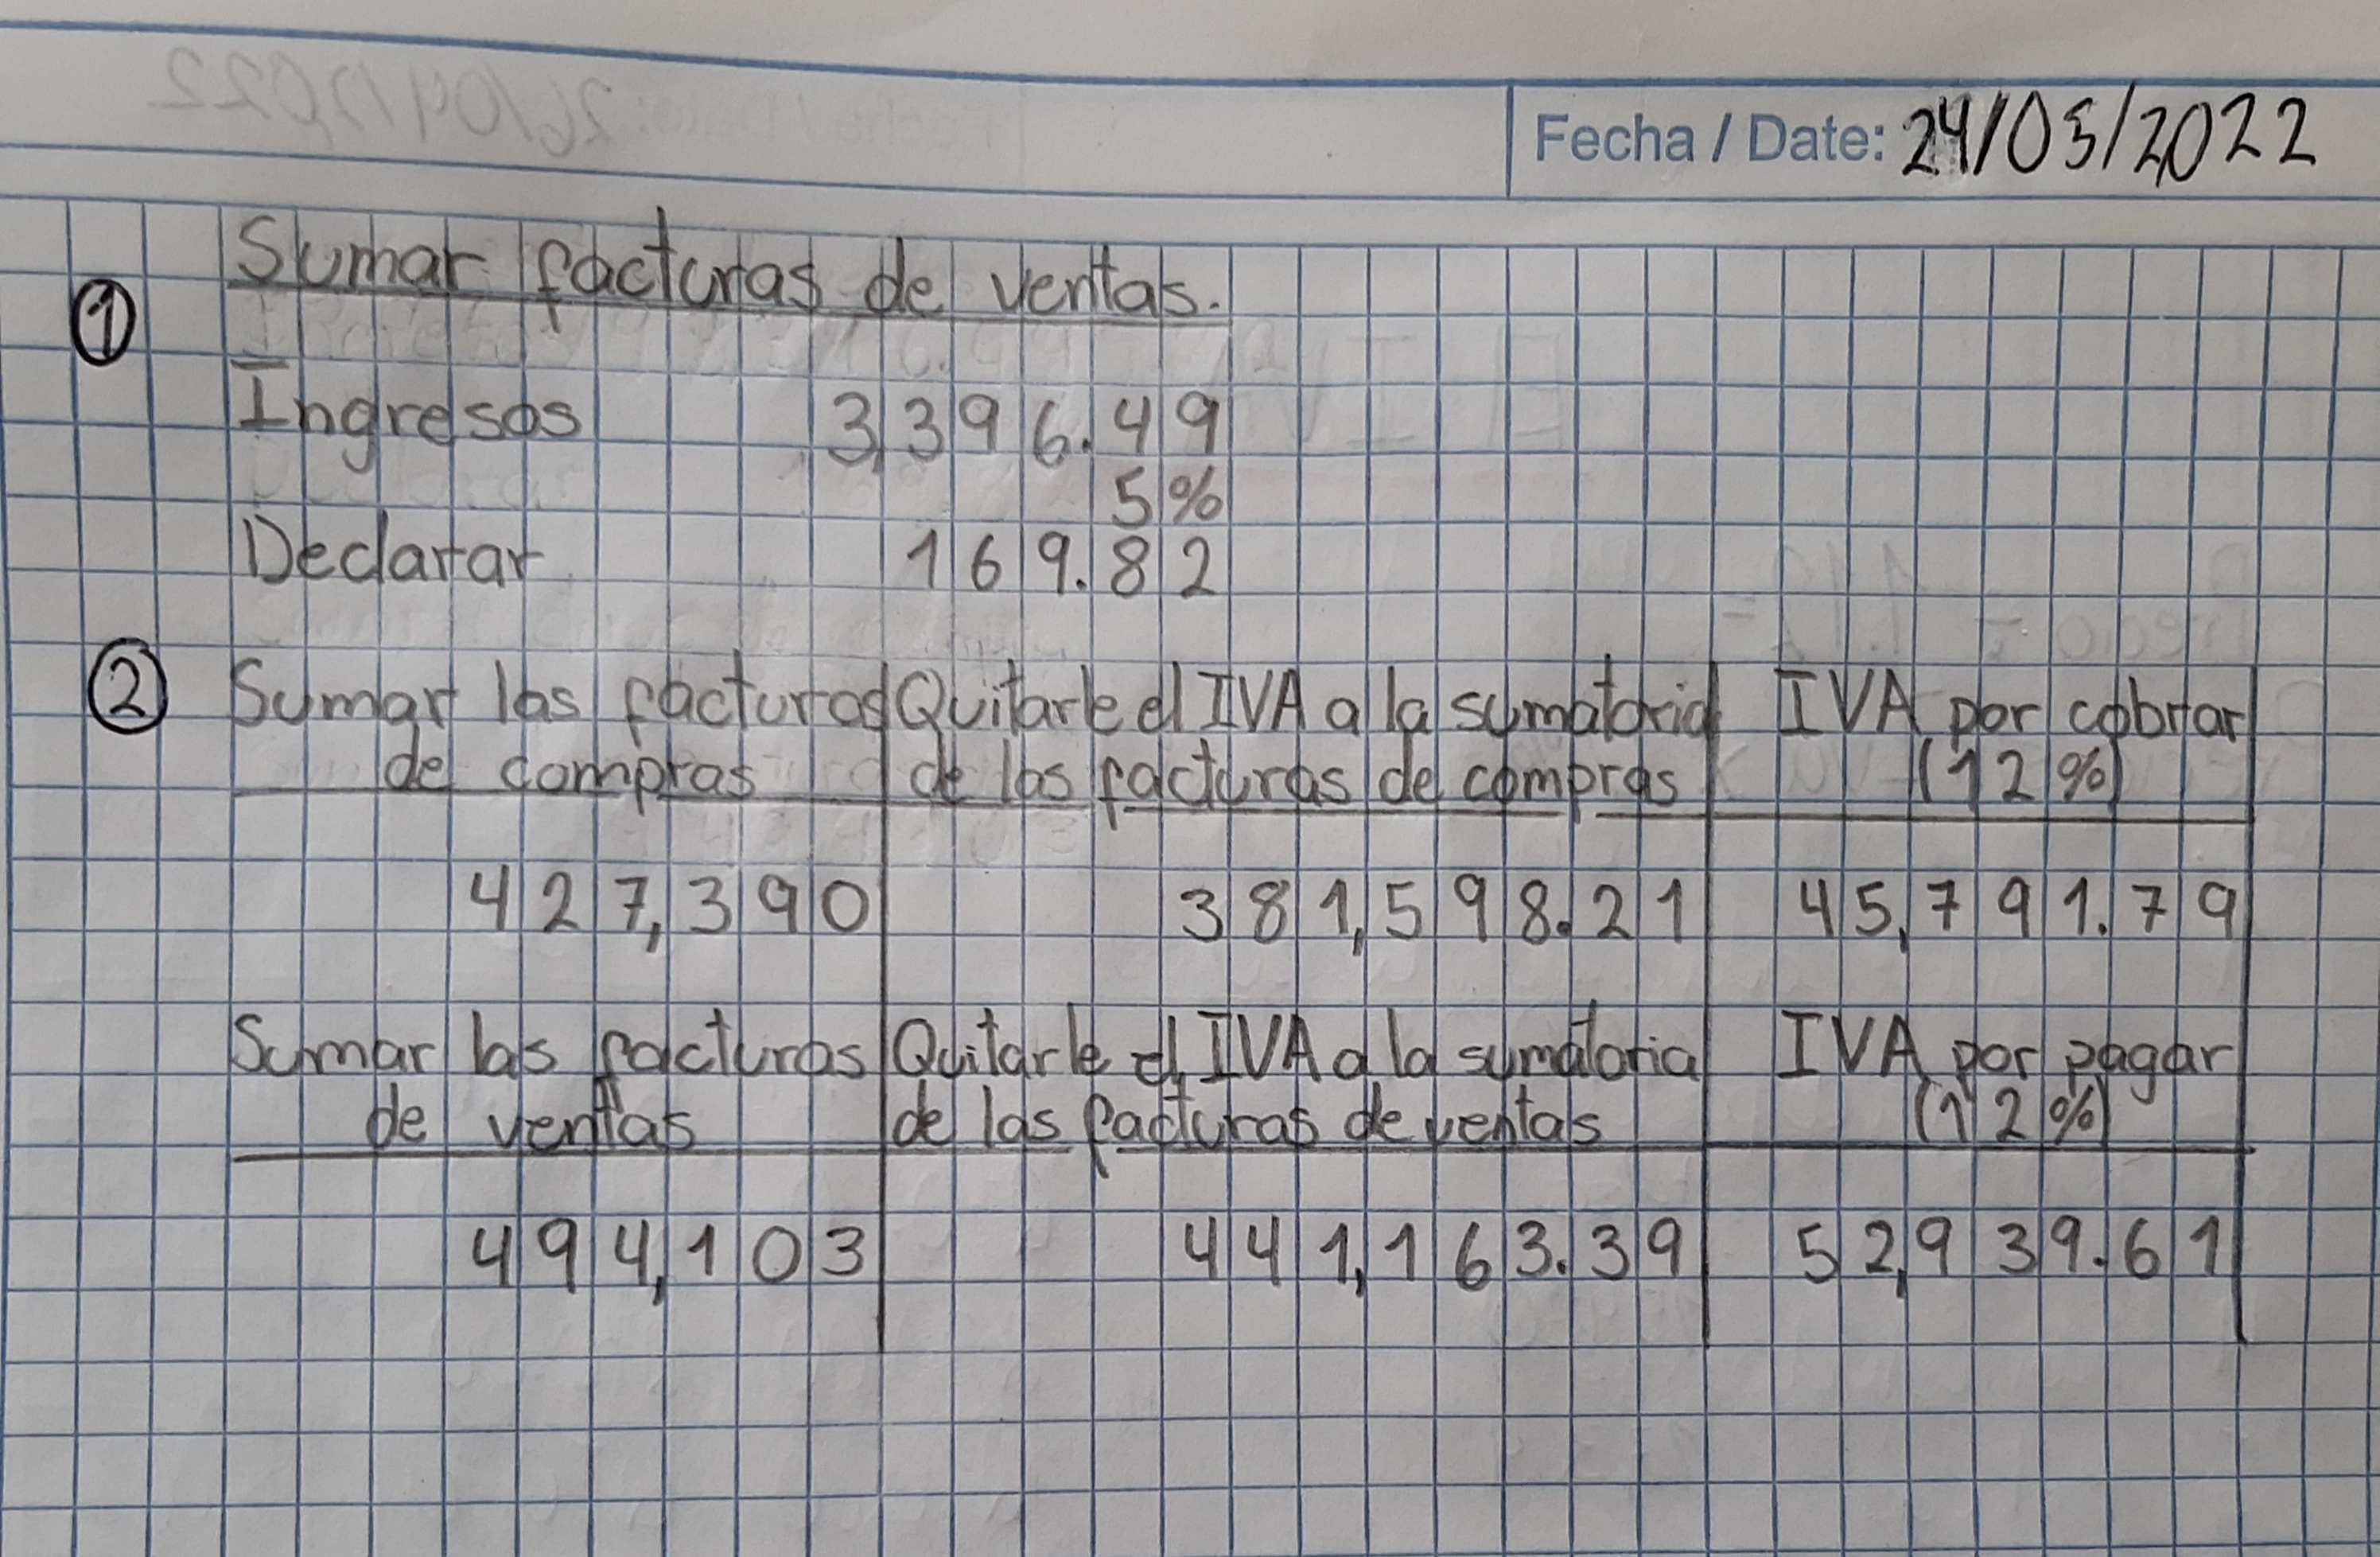 Fecha / Date: 24/05/2022
① Sumar facturas de ventas.
Ingresos 3,396.49
5%
Declarar 169.82
② Sumar las facturas Quitarle el IVA a la sumatoria IVA por cobrar
de compras de las facturas de compras (12%)
427,390 381,598.21 45,791.79
Sumar las facturas Quitarle el IVA a la sumatoria IVA por pagar
de ventas de las facturas de ventas (12%)
494,103 441,163.39 52,939.61